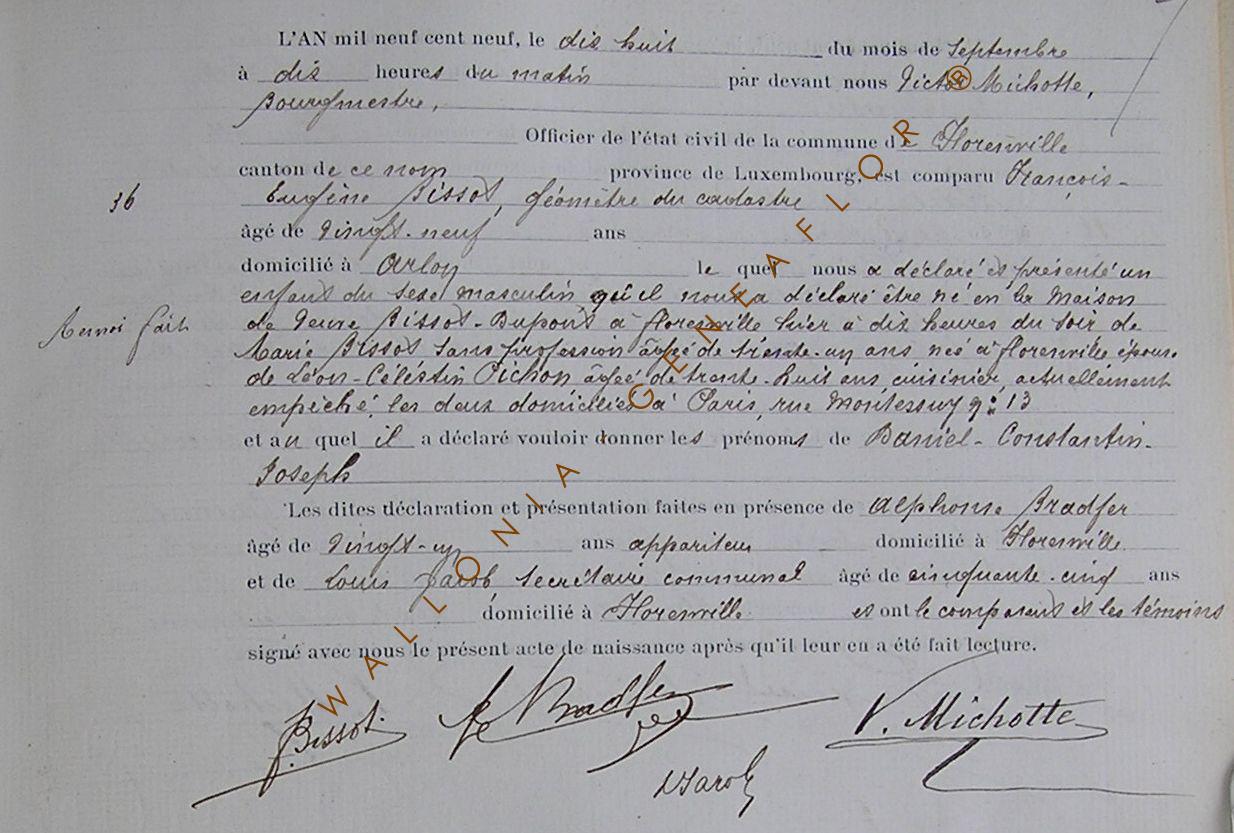 L'AN mil neuf cent neuf, le dix huit du mois de septembre
à dix heures du matin par devant nous Victor Michotte,
Bourgmestre,
Officier de l'état civil de la commune de Florenville
canton de ce nom province de Luxembourg, est comparu François-
36
Eugène Bissot, géomètre du cadastre
âgé de vingt-neuf ans
domicilié à Arlon le quel nous a déclaré et présenté un
enfant du sexe masculin qu'il nous a déclaré être né en la maison
Renvoi fait
de veuve Bissot-Dupont à florenville hier à dix heures du soir de
Marie Bissot sans profession âgée de trente-un ans née à florenville épouse
de Léon-Célestin Pichon âgée de trente-huit ans cuisinier, actuellement
empêché, les deux domiciliés à Paris, rue Montessuy 9: 13
et au quel il a déclaré vouloir donner les prénoms de Daniel-Constantin-
Joseph
Les dites déclaration et présentation faites en présence de Alphonse Bradfer
âgé de vingt-un ans appariteur domicilié à Florenville
et de Louis Jacob secrétaire communal âgé de cinquante-cinq ans
domicilié à Florenville et ont le comparant et les témoins
signé avec nous le présent acte de naissance après qu'il leur en a été fait lecture.
Bissot Bradfer V. Michotte
LJacob
WALLONIA - GENEAFLOR ®